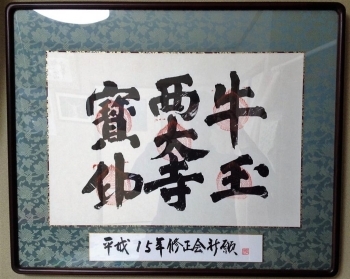 牛玉
西大寺
寶印
平成15年修正会祈願